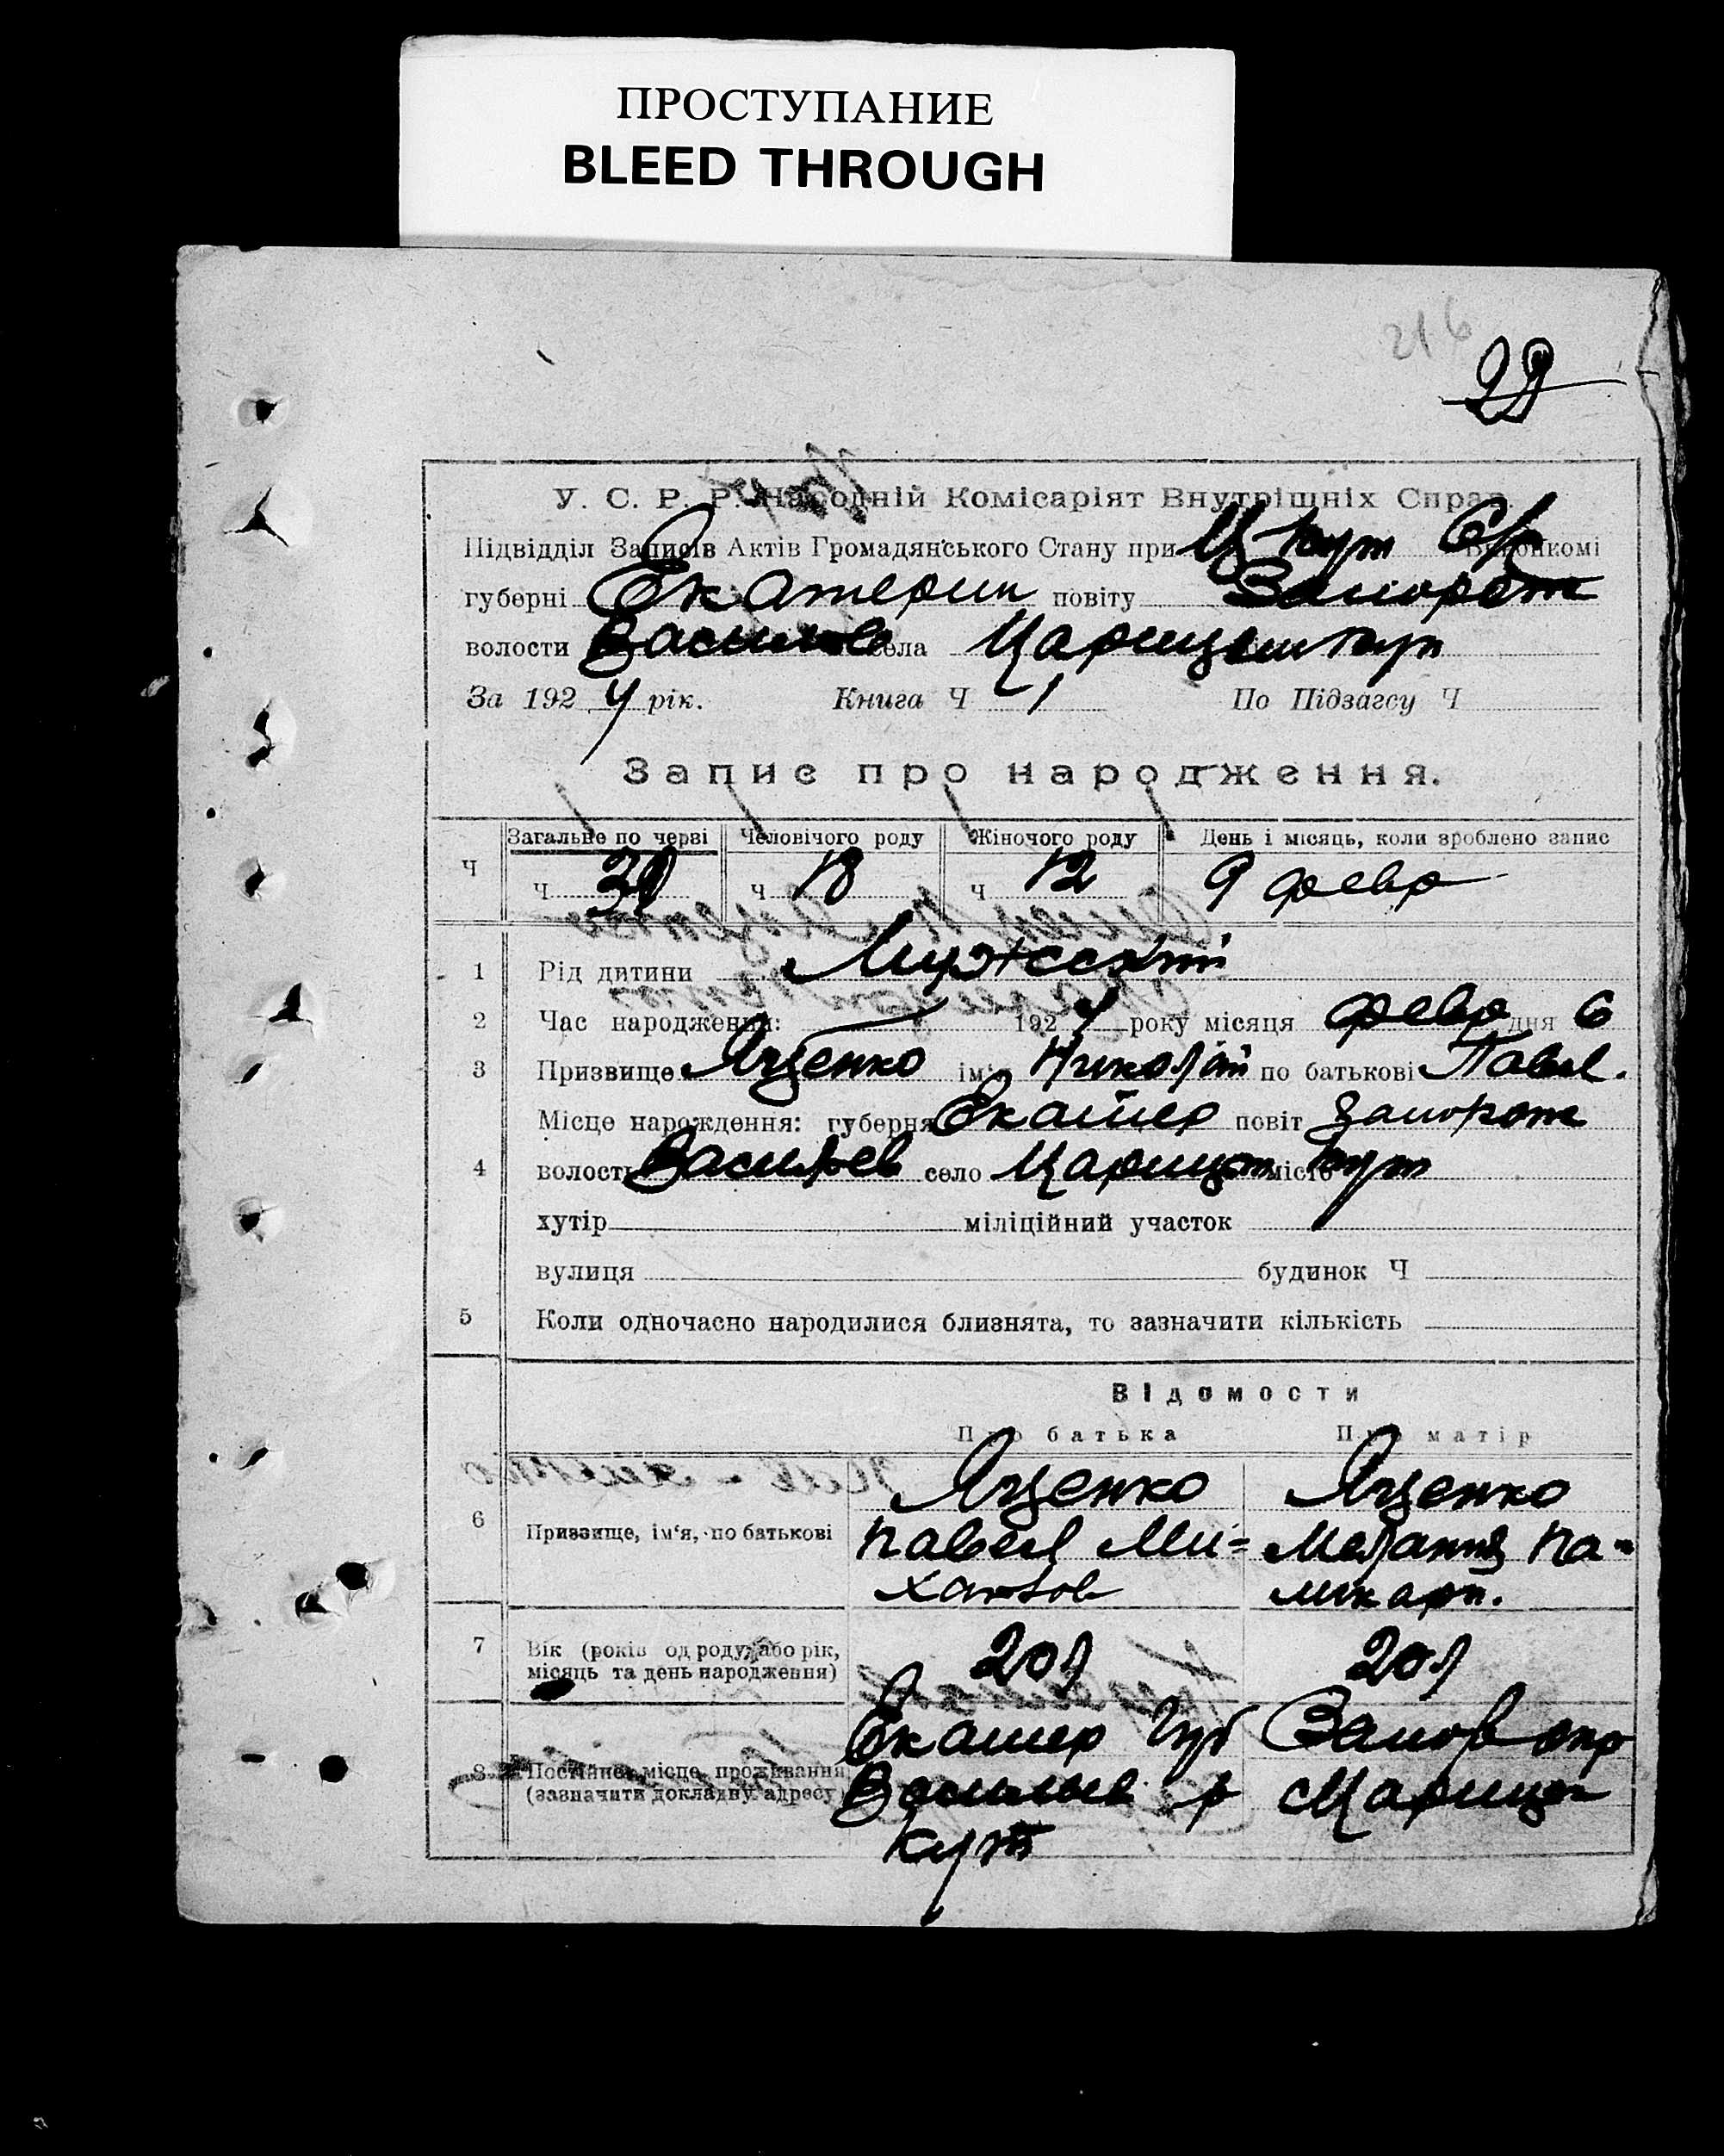 ПРОСТУПАНИЕ
BLEED THROUGH
216
У. С. Р. Р. Народній Комісаріят Внутрішніх Справ.
Підвідділ Записів Актів Громадянського Стану при Ц Кут С/р Виконкомі
губерні Екатерин повіту Запорож
волости Васильев села
За 1924 рік. Книга Ч 1 По Підзагсу Ч
Запис про народження.
Ч Загальне по черві Человічого роду Жіночого роду День і місяць, коли зроблено запис
Ч Ч 18 Ч 12 9 февр
1 Рід дитини Мужеский
2 Час народження: 1924 року місяця февр дня 6
3 Призвище Яценко ім'я Николай по батькові Павл.
Місце народження: губерня Екатер повіт Запорож
4 волость Васильев село Марицын місто Кут
хутір міліційний участок
вулиця будинок Ч
5 Коли одночасно народилися близнята, то зазначити кількість
Відомости
Про батька Про матір
6 Призвище, ім'я, по батькові Яценко Яценко
Павел Ми= Мелания По-
хайлов ликарп.
7 Вік (років од роду, або рік, місяць та день народження) 20л 20л
8 Постійне місце проживання (зазначити докладну адресу) Екатер Губ Запор окр
Васильев р
Кут